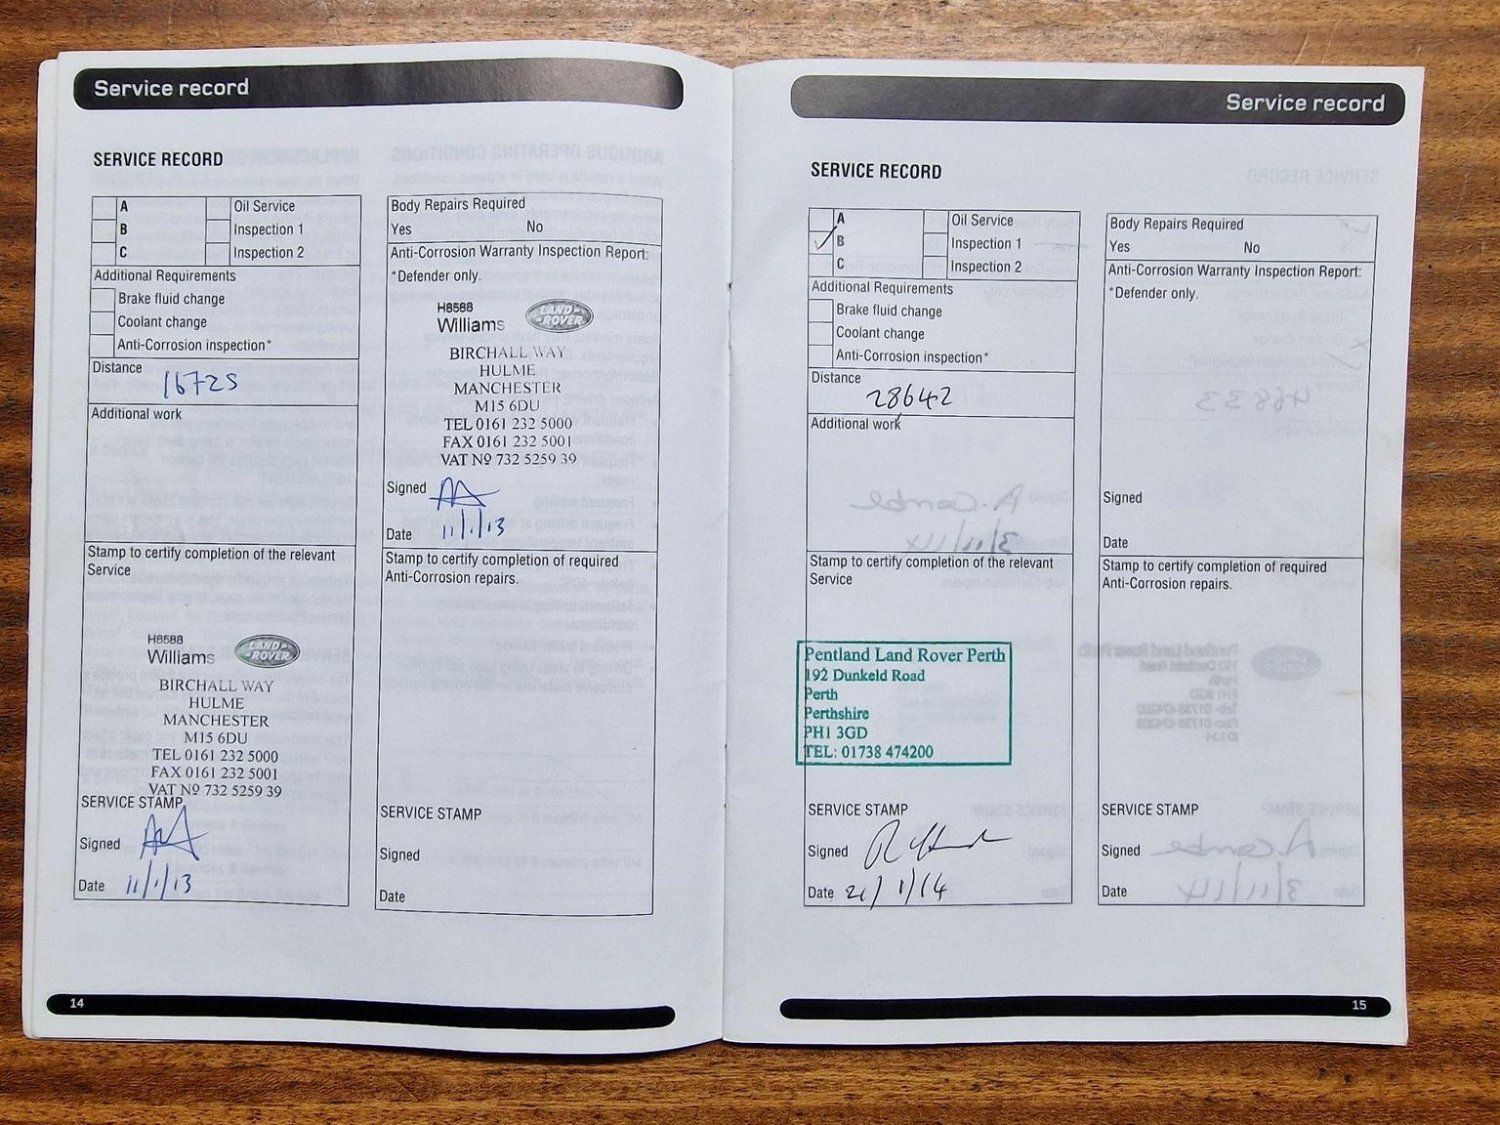 Service record
SERVICE RECORD
A
Oil Service
B
Inspection 1
C
Inspection 2
Additional Requirements
Brake fluid change
Coolant change
Anti-Corrosion inspection*
Distance
16725
Additional work
Stamp to certify completion of the relevant
Service
H8588
Williams
LAND-
-ROVER
BIRCHALL WAY
HULME
MANCHESTER
M15 6DU
TEL 0161 232 5000
FAX 0161 232 5001
VAT Nº 732 5259 39
SERVICE STAMP
Signed
Date 11/1/13
Body Repairs Required
Yes No
Anti-Corrosion Warranty Inspection Report:
*Defender only.
H8588
Williams
LAND-
-ROVER
BIRCHALL WAY
HULME
MANCHESTER
M15 6DU
TEL 0161 232 5000
FAX 0161 232 5001
VAT Nº 732 5259 39
Signed
Date 11/1/13
Stamp to certify completion of required
Anti-Corrosion repairs.
SERVICE STAMP
Signed
Date
14
Service record
SERVICE RECORD
A
Oil Service
B
Inspection 1
C
Inspection 2
Additional Requirements
Brake fluid change
Coolant change
Anti-Corrosion inspection*
Distance
28642
Additional work
Stamp to certify completion of the relevant
Service
Pentland Land Rover Perth
192 Dunkeld Road
Perth
Perthshire
PH1 3GD
TEL: 01738 474200
SERVICE STAMP
Signed
Date 21/1/14
Body Repairs Required
Yes No
Anti-Corrosion Warranty Inspection Report:
*Defender only.
Signed
Date
Stamp to certify completion of required
Anti-Corrosion repairs.
SERVICE STAMP
Signed
Date
15